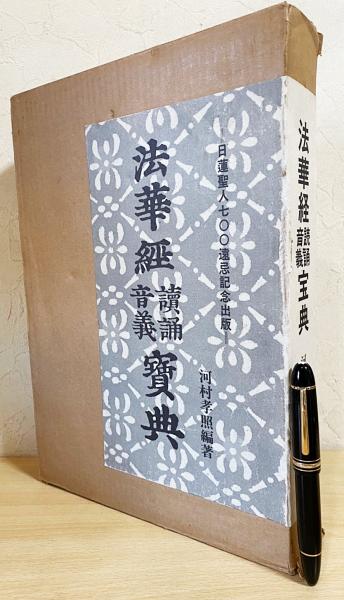 日蓮聖人七〇〇遠忌記念出版
法華經讀誦音義寶典
河村孝照編著
法華経読誦音義宝典